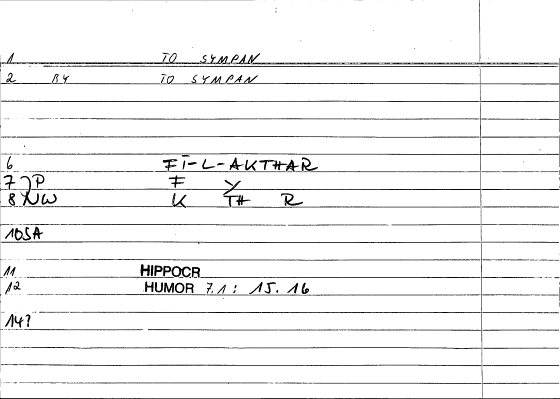 1 TO SYMPAN
2 BY TO SYMPAN
6 FĪ-L-AKTHAR
7 P F Y
8 NW K TH R
10SA
11 HIPPOCR
12 HUMOR 7.1: 15.16
14?